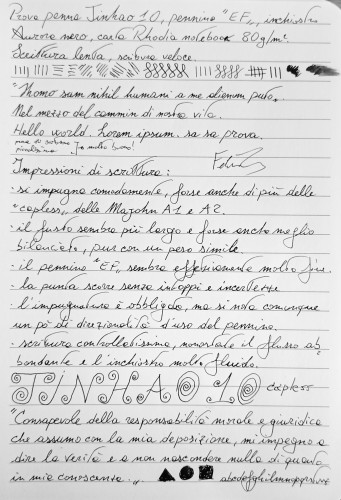 Prova penna Jinhao 10, pennino "EF", inchiostro
Aurora nero, carta Rhodia notebook 80g/m².
Scrittura lenta, scrittura veloce.
"Homo sum nihil humani a me alienum puto".
Nel mezzo del cammin di nostra vita.
Hello world. Lorem ipsum. sa sa prova.
piccolissimo
Impressioni di scrittura:
· si impugna comodamente, forse anche di più delle
"capless" delle Majohn A1 e A2.
· il fusto sembra più largo e forse anche meglio
bilanciato, pur con un peso simile.
· il pennino "EF" sembra effettivamente molto fine.
· la punta scorre senza intoppi e incertezze
· l'impugnatura è obbligata, ma si nota comunque
un pò di direzionalità d'uso del pennino.
· scrittura controllatissima, nonostante il flusso ab=
bondante e l'inchiostro molto fluido.
JINHAO 10 capless
"Consapevole della responsabilità morale e giuridica
che assumo con la mia deposizione, mi impegno a
dire la verità e a non nascondere nulla di quanto
in mia conoscenza."